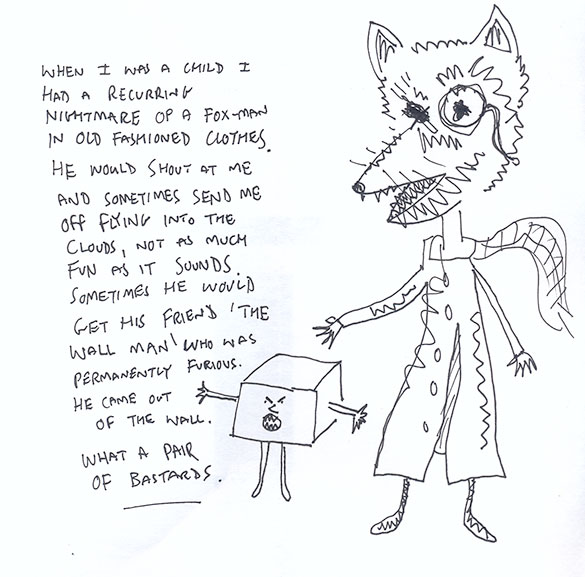 WHEN I WAS A CHILD I
HAD A RECURRING
NIGHTMARE OF A FOX-MAN
IN OLD FASHIONED CLOTHES.
HE WOULD SHOUT AT ME
AND SOMETIMES SEND ME
OFF FLYING INTO THE
CLOUDS, NOT AS MUCH
FUN AS IT SOUNDS.
SOMETIMES HE WOULD
GET HIS FRIEND 'THE
WALL MAN' WHO WAS
PERMANENTLY FURIOUS.
HE CAME OUT
OF THE WALL.
WHAT A PAIR
OF BASTARDS.